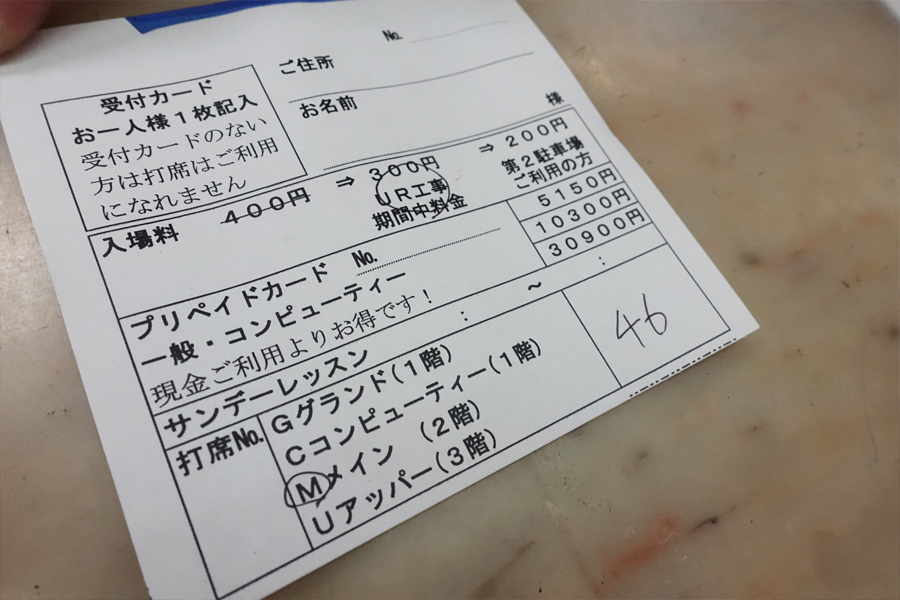 No.
ご住所
お名前
様
受付カード
お一人様1枚記入
受付カードのない
方は打席はご利用
になれません
入場料
400円
⇒ 300円
UR工事
期間中料金
⇒ 200円
第2駐車場
ご利用の方
プリペイドカード No.
一般・コンピューティー
現金ご利用よりお得です!
5150円
10300円
30900円
サンデーレッスン : ~ :
打席No.
Gグランド(1階)
Cコンピューティー(1階)
Mメイン (2階)
Uアッパー(3階)
46